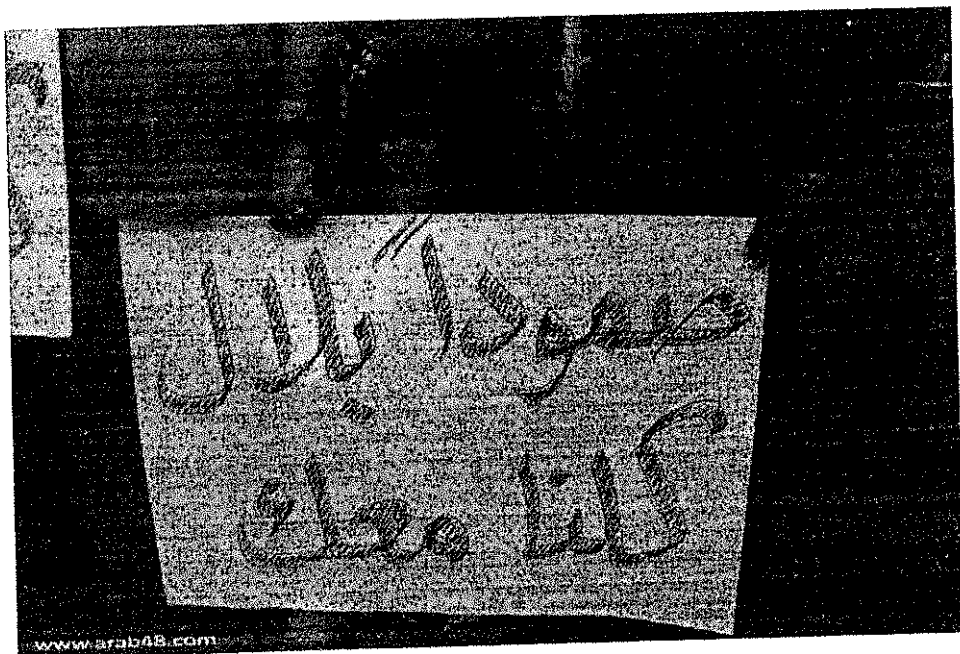 صموداً بلال
كلنا معك
www.arab48.com